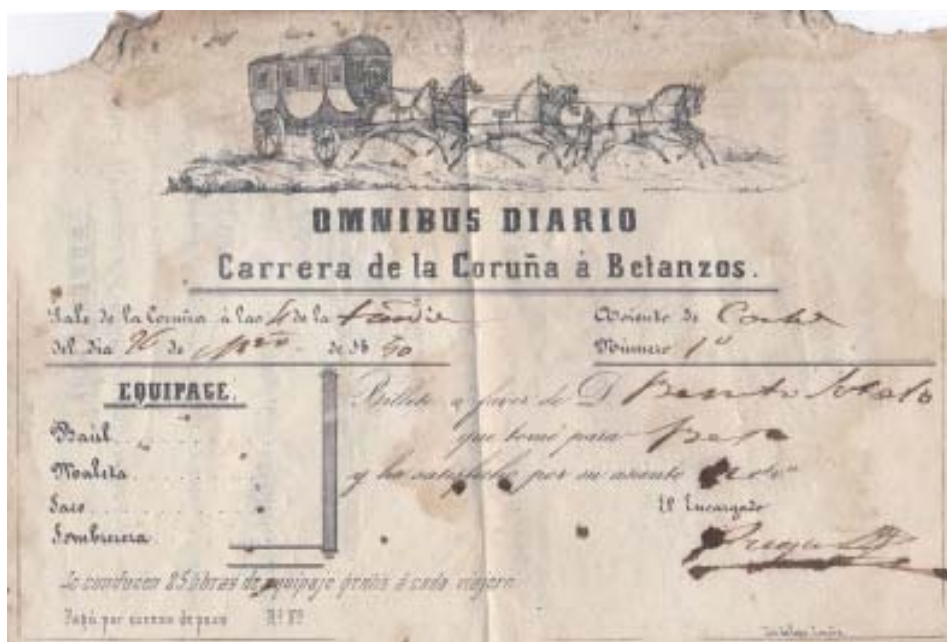 OMNIBUS DIARIO
Carrera de la Coruña á Betanzos.
Sale de la Coruña á las 4 de la tarde
del dia 26 de de 18
Asiento de
Número 1º
EQUIPAGE.
Baúl
Maleta
Saco
Sombrerera
Billete a favor de D. Benito Sotelo
que tomó para
y ha satisfecho por su asiento
El Encargado
Se conducen 25 libras de equipaje gratis á cada viajero
Pagó por exceso de peso Rs. Vn.